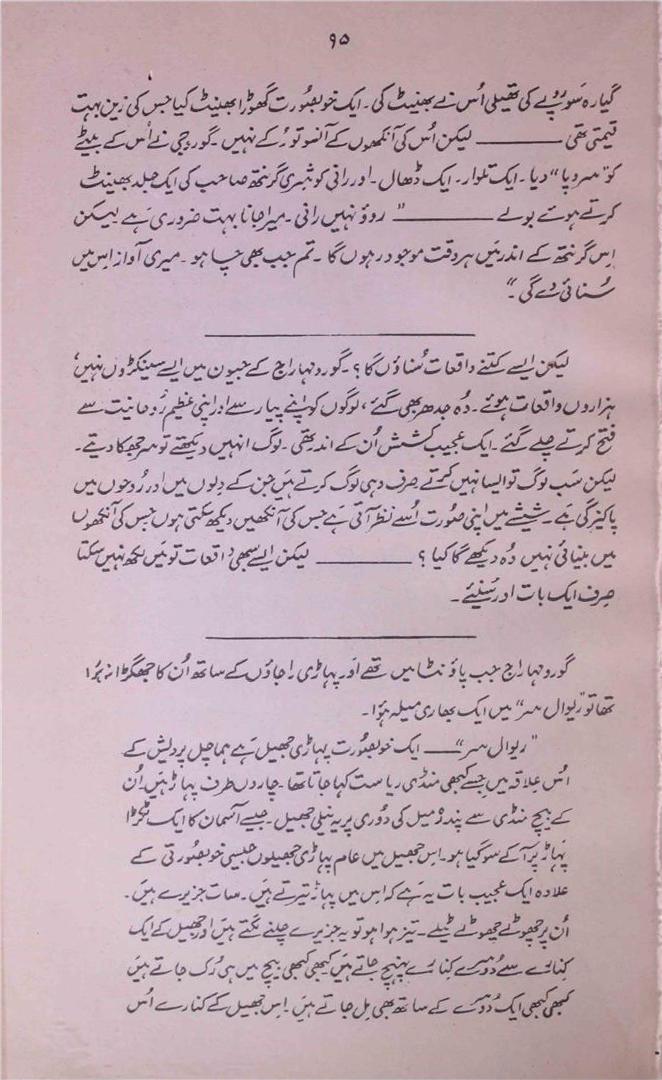 ۹۵
گیارہ سو روپے کی تھیلی اُس نے بھینٹ کی۔ ایک خوبصورت گھوڑا بھینٹ کیا جس کی زین بہت
قیمتی تھی ــــــــــ لیکن اُس کی آنکھوں کے آنسو تو رُکے نہیں۔ گورو جی نے اُس کے بیٹے
کو "سروپا" دیا۔ ایک تلوار۔ ایک ڈھال۔ اور رانی کو شری گرنتھ صاحب کی ایک جلد بھینٹ
کرتے ہوئے بولے ــــــــــ "روؤ نہیں رانی۔ میرا جانا بہت ضروری ہے لیکن
اِس گرنتھ کے اندر میں ہر وقت موجود رہوں گا۔ تم جب بھی چاہو۔ میری آواز اِس میں
سُنائی دے گی"
لیکن ایسے کتنے واقعات سُناؤں گا؟۔ گورو مہاراج کے جیون میں ایسے سینکڑوں نہیں،
ہزاروں واقعات ہوئے۔ وُہ جدھر بھی گئے، لوگوں کو اپنے پیار سے اور اپنی عظیم رُوحانیت سے
فتح کرتے چلے گئے۔ ایک عجیب کشش اُن کے اندر تھی۔ لوگ انہیں دیکھتے تو سر جھکا دیتے۔
لیکن سَب لوگ تو ایسا نہیں کرتے صرف وہی لوگ کرتے ہیں جن کے دِلوں میں اور رُوحوں میں
پاکیزگی ہے۔ شیشے میں اپنی صُورت اُسے نظر آتی ہے جس کی آنکھیں دیکھ سکتی ہوں جس کی آنکھوں
میں بینائی نہیں وُہ دیکھے گا کیا؟ ــــــــــ لیکن ایسے سبھی واقعات تو میں لکھ نہیں سکتا
صِرف ایک بات اور سُنیئے۔
گورو مہاراج جب پاؤنٹا میں تھے اور پہاڑی راجاؤں کے ساتھ اُن کا جھگڑا نہ ہُوا
تھا تو "ریوال سر" میں ایک بھاری میلہ ہُوا۔
"ریوال سر" ــــــ ایک خوبصُورت پہاڑی جھیل ہے ہماچل پردیش کے
اُس علاقہ میں جِسے کبھی منڈی ریاست کہا جاتا تھا۔ چاروں طرف پہاڑ ہیں اُن
کے بیچ منڈی سے پندرہ میل کی دُوری پر یہ نیلی جھیل۔ جیسے آسمان کا ایک ٹکڑا
پہاڑ پر آ کے سو گیا ہو۔ اِس جھیل میں عام پہاڑی جھیلوں جیسی خوبصُورتی کے
علاوہ ایک عجیب بات یہ ہے کہ اِس میں پہاڑ تیرتے ہیں۔ سات جزیرے ہیں۔
اُن پر چھوٹے چھوٹے ٹیلے۔ تیز ہوا ہو تو یہ جزیرے چلنے لگتے ہیں اور جھیل کے ایک
کِنارے سے دُوسرے کنارے پہنچ جاتے ہیں کبھی کبھی بیچ میں ہی رُک جاتے ہیں
کبھی کبھی ایک دُوسرے کے ساتھ بھی مِل جاتے ہیں۔ اِس جھیل کے کنارے اُس